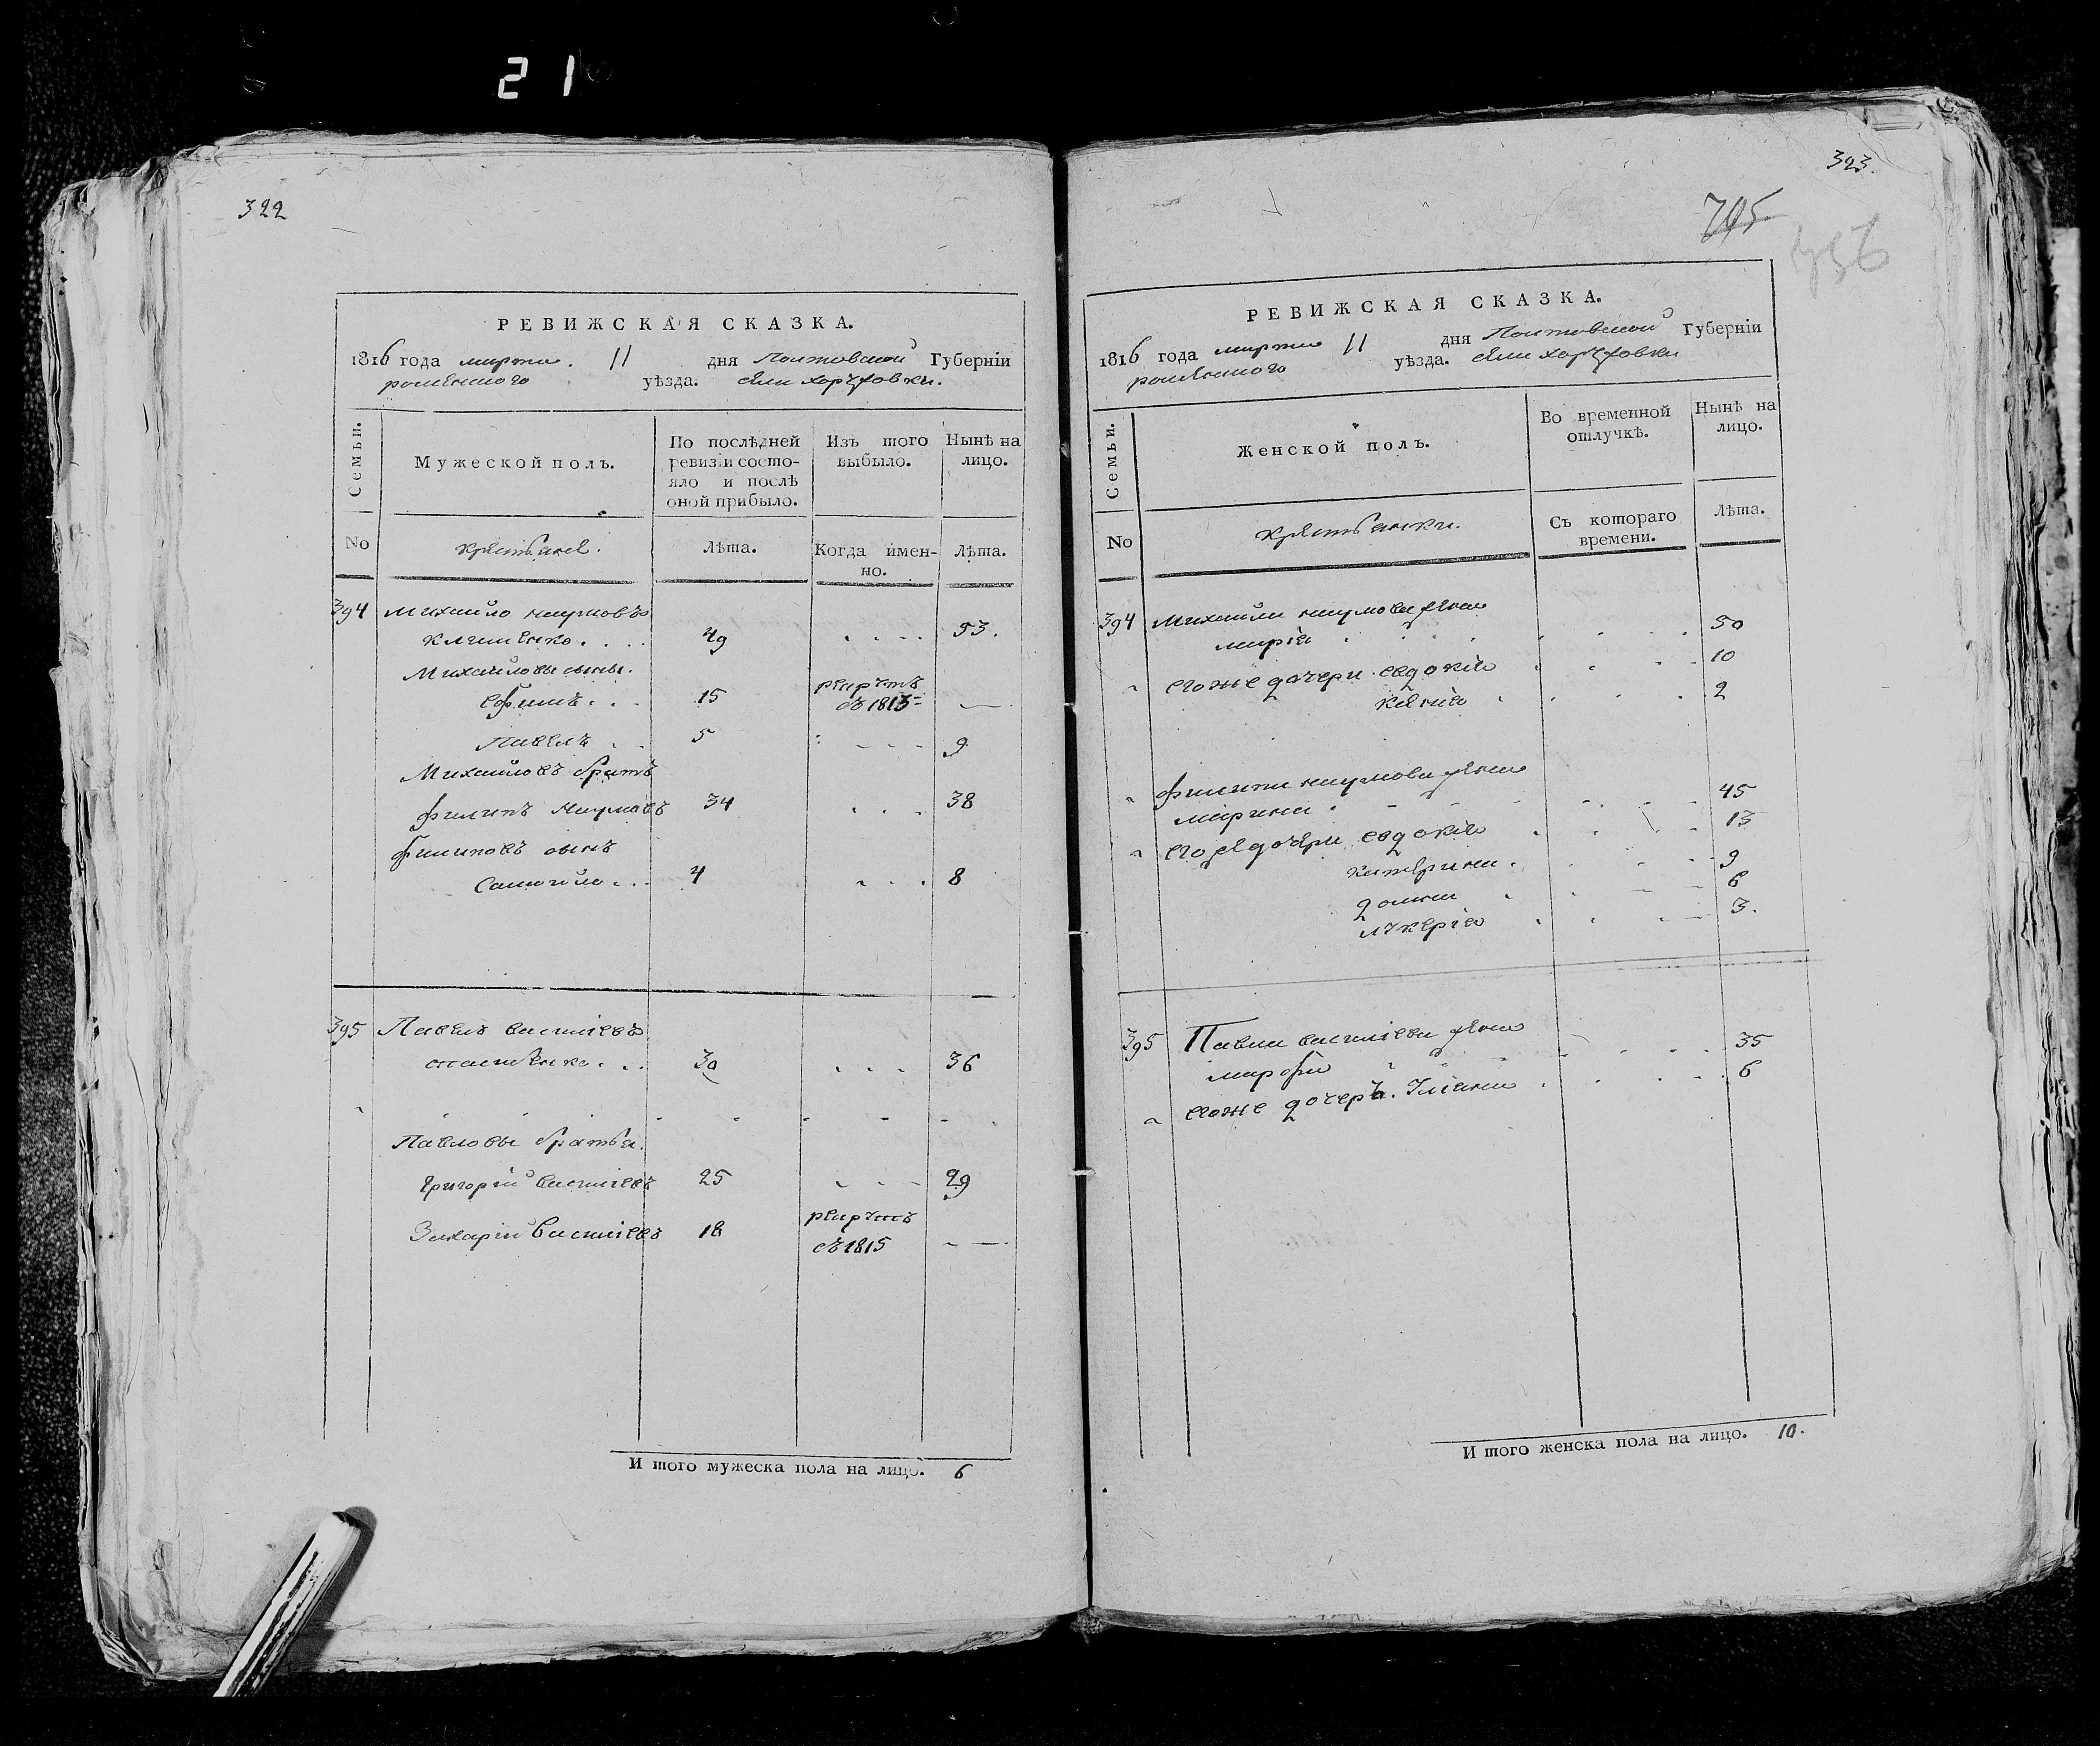 21
322
РЕВИЖСКАЯ СКАЗКА.
1816 года марта 11 дня Полтавской Губерніи
роменского уѣзда. села хоружовки.
Семьи.
Мужеской полъ.
По послѣдней ревизіи состояло и послѣ оной прибыло.
Изъ того выбыло.
Нынѣ на лицо.
No
крестьяне.
Лѣта.
Когда именно.
Лѣта.
394 Михайло наумовъ
клименко 49 53.
Михайловы сыны.
Ефимъ 15 рекрутъ съ 1813 —
Павелъ 5 9
Михайловъ братъ
филипъ Наумовъ 34 38
филиповъ сынъ
Самойло 4 8
395 Павелъ василіевъ
30 36
Павловы братья.
Григорій василіевъ 25 29
Захарій василіевъ 18 рекрутъ съ 1815 —
И того мужеска пола на лицо. 6
323.
705
РЕВИЖСКАЯ СКАЗКА.
1816 года марта 11 дня Полтавской Губерніи
роменского уѣзда. села хоружовки
Семьи.
Женской полъ.
Во временной отлучкѣ.
Нынѣ на лицо.
No
крестьянки.
Съ котораго времени.
Лѣта.
394 Михайла наумова жена
марія 50
его же дочери. евдокія 10
ксенія 2
филипа наумова жена
марина 45
его же дочери евдокія 13
катерина 9
домна 6
лукерія 3.
395 Павла василіева жена
марфа 35
его же дочеръ. Уліана 6
И того женска пола на лицо. 10.